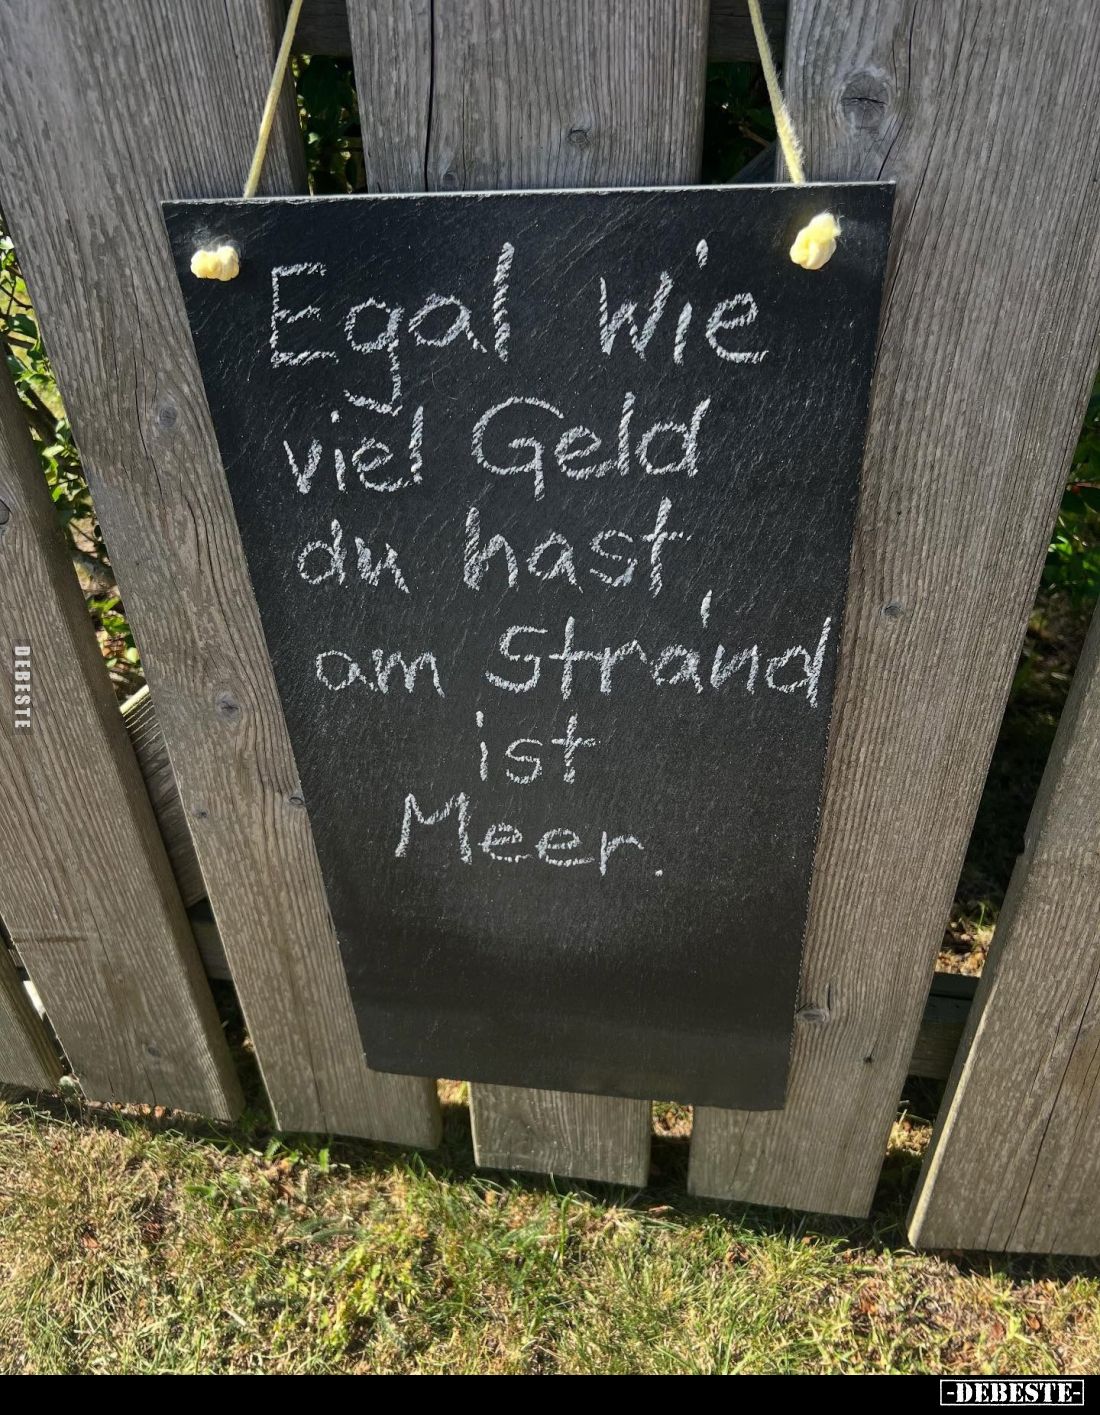 Egal wie
viel Geld
du hast,
am Strand
ist
Meer.
DEBESTE
-DEBESTE-